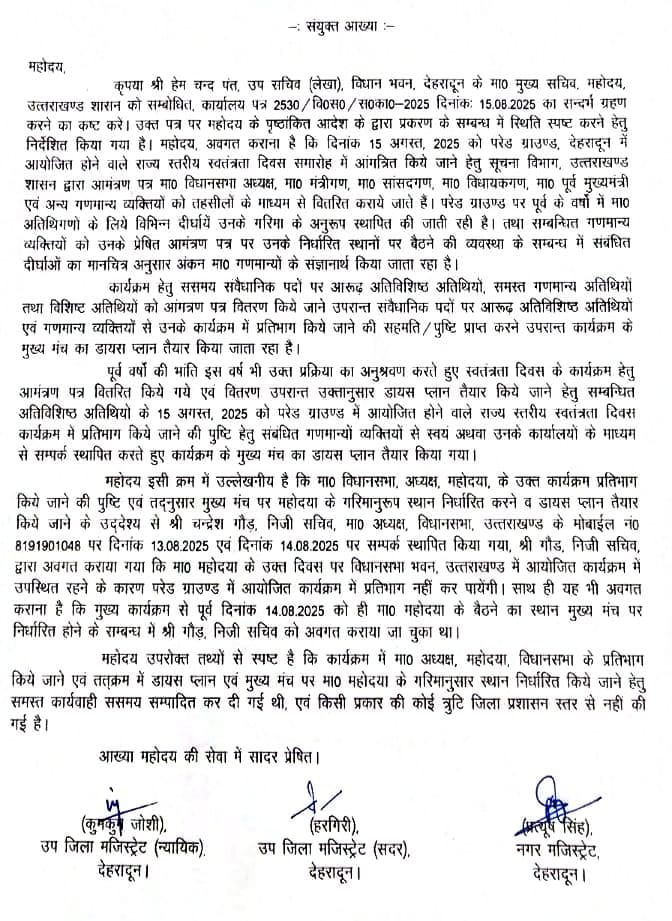 –: संयुक्त आख्या :–
महोदय,
कृपया श्री हेम चन्द पंत, उप सचिव (लेखा), विधान भवन, देहरादून के मा0 मुख्य सचिव, महोदय,
उत्तराखण्ड शासन को सम्बोधित, कार्यालय पत्र 2530/वि0स0/स0का0–2025 दिनांकः 15.08.2025 का सन्दर्भ ग्रहण
करने का कष्ट करे। उक्त पत्र पर महोदय के पृष्ठांकित आदेश के द्वारा प्रकरण के सम्बन्ध में स्थिति स्पष्ट करने हेतु
निर्देशित किया गया है। महोदय, अवगत कराना है कि दिनांक 15 अगस्त, 2025 को परेड ग्राउण्ड, देहरादून में
आयोजित होने वाले राज्य स्तरीय स्वतंत्रता दिवस समारोह में आंगत्रित किये जाने हेतु सूचना विभाग, उत्तराखण्ड
शासन द्वारा आमंत्रण पत्र मा0 विधानसभा अध्यक्ष, मा0 मंत्रीगण, मा0 सांसदगण, मा0 विधायकगण, मा0 पूर्व मुख्यमंत्री
एवं अन्य गणमान्य व्यक्तियों को तहसीलों के माध्यम से वितरित कराये जाते हैं। परेड ग्राउण्ड पर पूर्व के वर्षो में मा0
अतिथिगणो के लिये विभिन्न दीर्घायें उनके गरिमा के अनुरूप स्थापित की जाती रही है। तथा सम्बन्धित गणमान्य
व्यक्तियों को उनके प्रेषित आमंत्रण पत्र पर उनके निर्धारित स्थानों पर बैठने की व्यवस्था के सम्बन्ध में संबंधित
दीर्घाओं का मानचित्र अनुसार अंकन मा0 गणमान्यों के संज्ञानार्थ किया जाता रहा है।
कार्यक्रम हेतु ससमय संवैधानिक पदों पर आरूढ़ अतिविशिष्ठ अतिथियों, समस्त गणमान्य अतिथियों
तथा विशिष्ट अतिथियों को आंगत्रण पत्र वितरण किये जाने उपरान्त संवैधानिक पदों पर आरूढ़ अतिविशिष्ठ अतिथियों
एवं गणमान्य व्यक्तियों से उनके कार्यक्रम में प्रतिभाग किये जाने की सहमति/पुष्टि प्राप्त करने उपरान्त कार्यक्रम के
मुख्य मंच का डायस प्लान तैयार किया जाता रहा है।
पूर्व वर्षो की भांति इस वर्ष भी उक्त प्रक्रिया का अनुश्रवण करते हुए स्वतंत्रता दिवस के कार्यक्रम हेतु
आमंत्रण पत्र वितरित किये गये एवं वितरण उपरान्त उक्तानुसार डायस प्लान तैयार किये जाने हेतु सम्बन्धित
अतिविशिष्ठ अतिथियो के 15 अगस्त, 2025 को परेड ग्राउण्ड में आयोजित होने वाले राज्य स्तरीय स्वतंत्रता दिवस
कार्यक्रम में प्रतिभाग किये जाने की पुष्टि हेतु संबंधित गणमान्यों व्यक्तियों से स्वयं अथवा उनके कार्यालयों के माध्यम
से सम्पर्क स्थापित करते हुए कार्यक्रम के मुख्य मंच का डायस प्लान तैयार किया गया।
महोदय इसी क्रम में उल्लेखनीय है कि मा0 विधानसभा, अध्यक्ष, महोदया, के उक्त कार्यक्रम प्रतिभाग
किये जाने की पुष्टि एवं तद्नुसार मुख्य मंच पर महोदया के गरिमानुरूप स्थान निर्धारित करने व डायस प्लान तैयार
किये जाने के उद्देश्य से श्री चन्द्रेश गौड़, निजी सचिव, मा0 अध्यक्ष, विधानसभा, उत्तराखण्ड के मोबाईल नं0
8191901048 पर दिनांक 13.08.2025 एवं दिनांक 14.08.2025 पर सम्पर्क स्थापित किया गया, श्री गौड, निजी सचिव,
द्वारा अवगत कराया गया कि मा0 महोदया के उक्त दिवस पर विधानसभा भवन, उत्तराखण्ड में आयोजित कार्यक्रम में
उपस्थित रहने के कारण परेड ग्राउण्ड में आयोजित कार्यक्रम में प्रतिभाग नहीं कर पायेंगी। साथ ही यह भी अवगत
कराना है कि मुख्य कार्यक्रम से पूर्व दिनांक 14.08.2025 को ही मा0 महोदया के बैठने का स्थान मुख्य मंच पर
निर्धारित होने के सम्बन्ध में श्री गौड़, निजी सचिव को अवगत कराया जा चुका था।
महोदय उपरोक्त तथ्यों से स्पष्ट है कि कार्यक्रम में मा0 अध्यक्ष, महोदया, विधानसभा के प्रतिभाग
किये जाने एवं तत्क्रम में डायस प्लान एवं मुख्य मंच पर मा0 महोदया के गरिमानुसार स्थान निर्धारित किये जाने हेतु
समस्त कार्यवाही ससमय सम्पादित कर दी गई थी, एवं किसी प्रकार की कोई त्रुटि जिला प्रशासन स्तर से नहीं की
गई है।
आख्या महोदय की सेवा में सादर प्रेषित।
(कुमकुम जोशी), (हरगिरी), (प्रत्यूष सिंह),
उप जिला मजिस्ट्रेट (न्यायिक), उप जिला मजिस्ट्रेट (सदर), नगर मजिस्ट्रेट,
देहरादून। देहरादून। देहरादून।